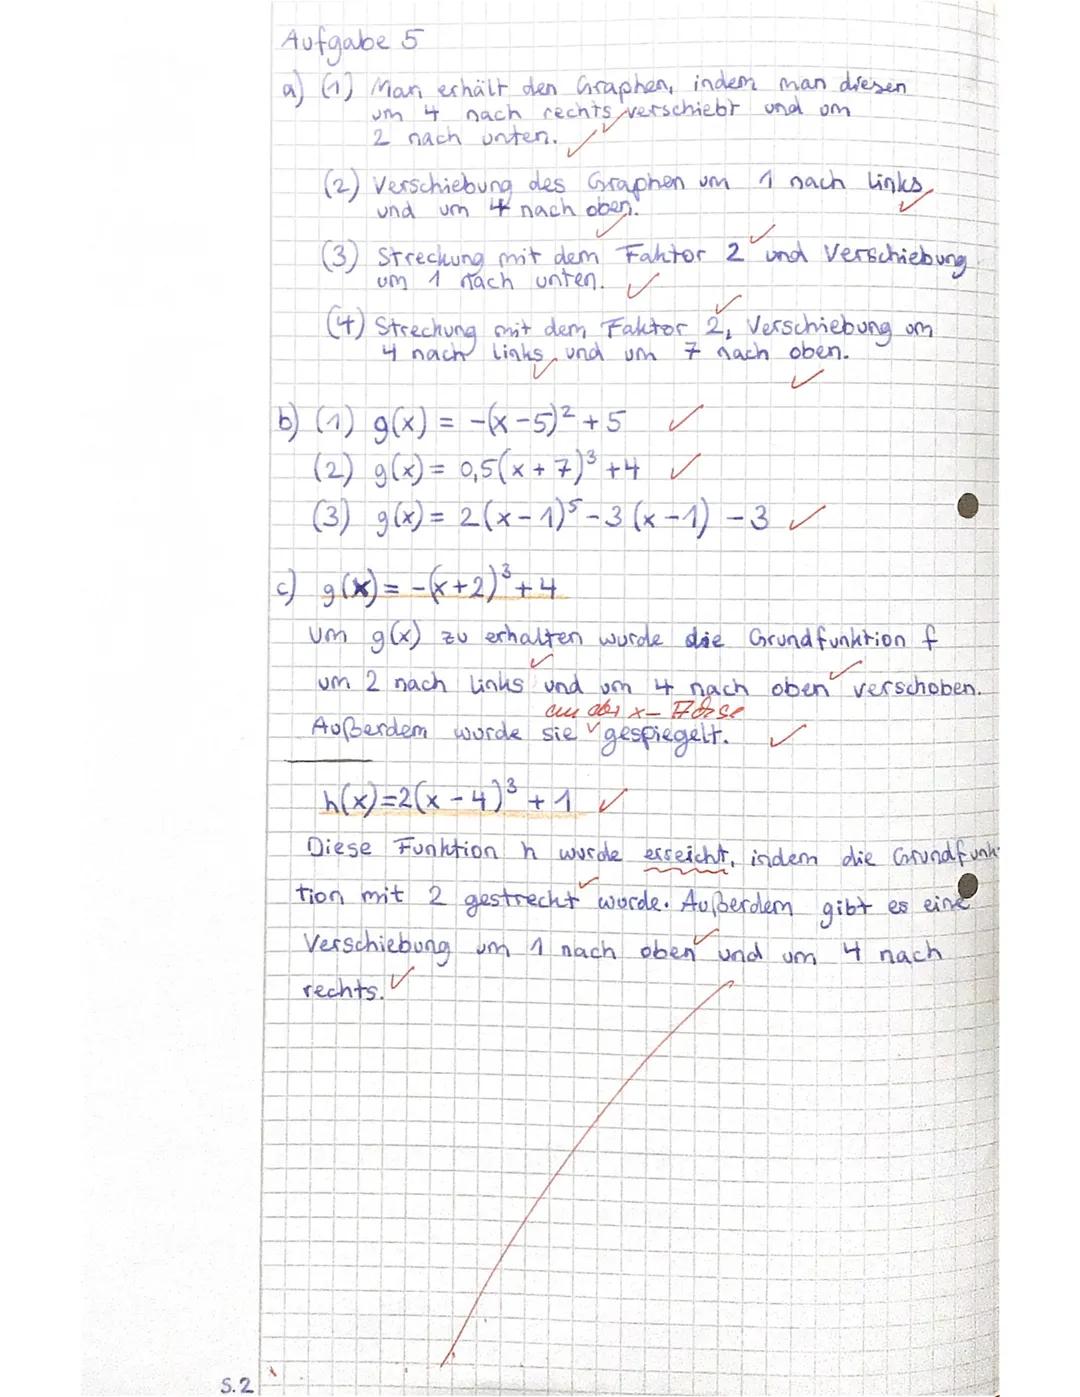 Aufgabe 5
a) (1) Man erhält den Graphen, indem man diesen
um 4 nach rechts verschiebt und um
2 nach unten.
(2) Verschiebung des Graphen um 1 nach links
und um 4 nach oben.
(3) Streckung mit dem Faktor 2 und Verschiebung
um 1 nach unten.
(4) Streckung mit dem Faktor 2, Verschiebung um
4 nach links und um 7 nach oben.
b) (1) g(x) = -(x-5)² + 5
(2) g(x) = 0,5(x + 7)³ + 4
(3) g(x) = 2(x - 1)⁵ - 3(x - 1) - 3
c) g(x) = -(x+2)³ + 4
um g(x) zu erhalten wurde die Grundfunktion f
um 2 nach links und um 4 nach oben verschoben.
an der x-Achse
Außerdem wurde sie gespiegelt.
h(x)=2(x - 4)³ + 1
Diese Funktion h wurde erreicht, indem die Grundfunk-
tion mit 2 gestreckt wurde. Außerdem gibt es eine
Verschiebung um 1 nach oben und um 4 nach
rechts.
S.2